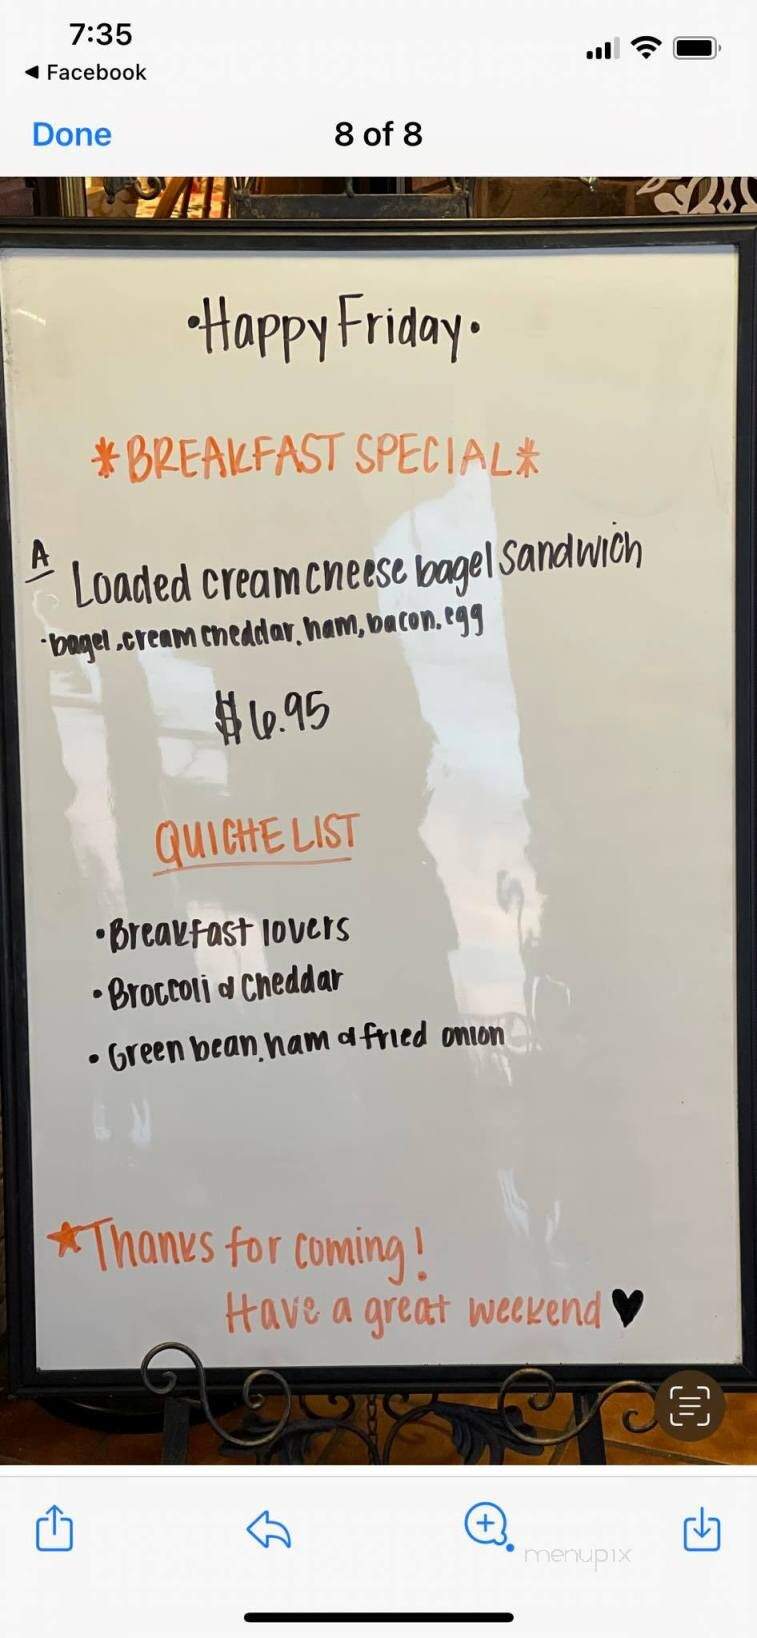 7:35
◀ Facebook
Done
8 of 8
•Happy Friday•
*BREAKFAST SPECIAL*
A Loaded cream cheese bagel sandwich
•bagel, cream cheddar, ham, bacon, egg
$6.95
QUICHE LIST
•Breakfast lovers
•Broccoli & Cheddar
•Green bean, ham & fried onion
★Thanks for coming!
Have a great weekend ♥
menupix